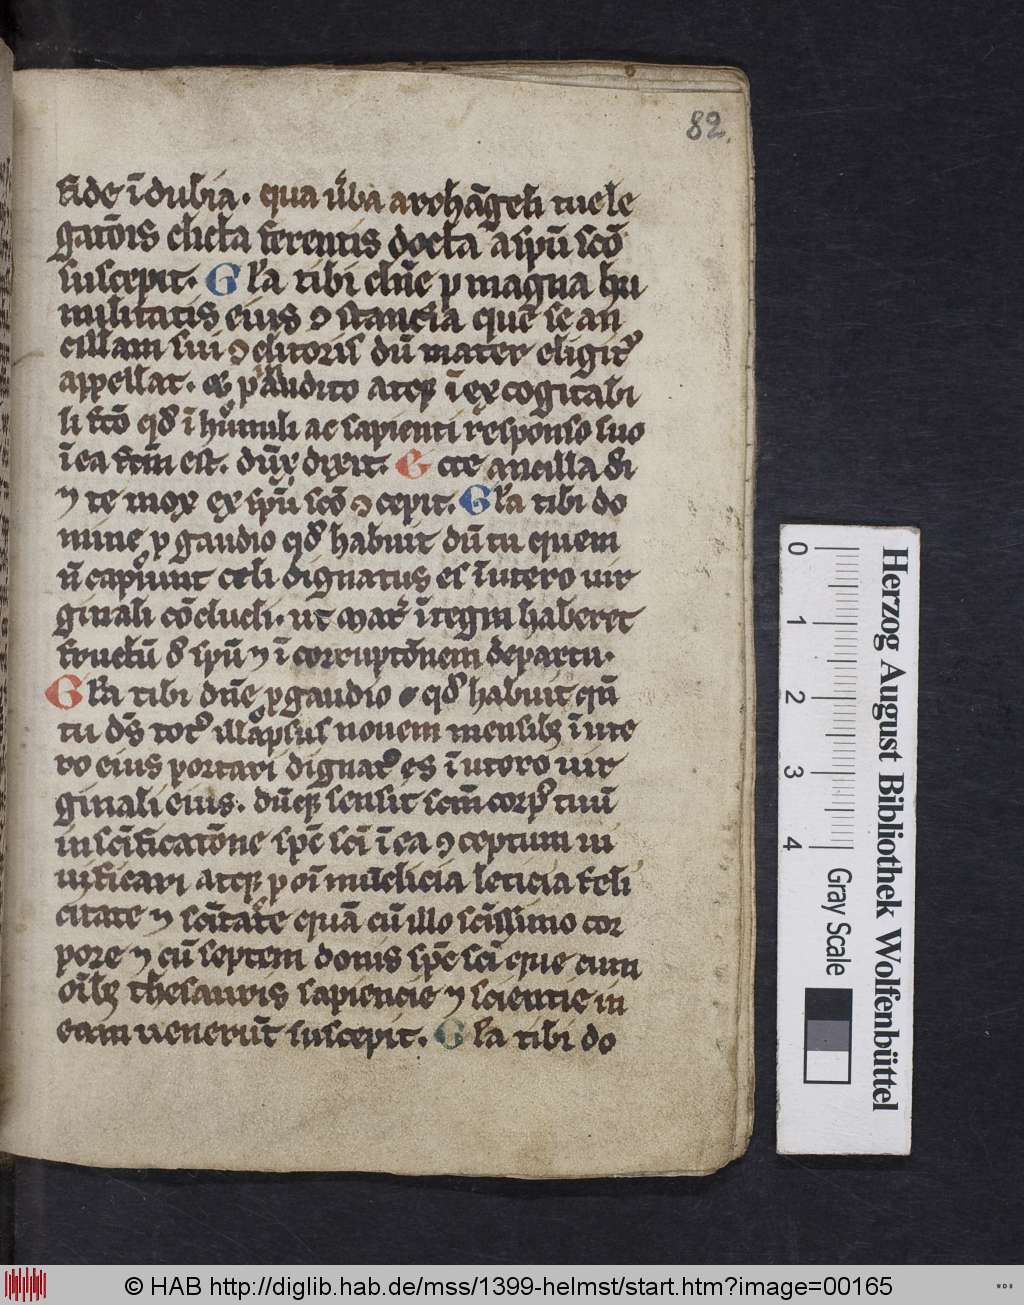 82.
fide īdubia. qua ůba archāgeli tue le
gatōis electa ferentis docta a spū scō
suscepit. Gl'a tibi dn̄e p magna hu
militatis eius ɔstancia quē se an
cillam sui ɔditoris dū mater eligit᷑
appellat. p audito atqꝫ īexcogitabi
li scō qd̓ ī hūmili ac sapienti responso suo
ī ea fc̄m est. dūx dixit. Ecce ancilla di
⁊ te mox ex spū scō ɔcepit. Gl'a tibi do
mine p gaudio qd̓ habuit dū tu quem
n̄ capiunt celi dignatus es ī utero uir
ginali cōcludi. ut mat᷑ ītegra haberet
fructū d̓ spū ⁊ ī corruptōnem departu.
Gl'a tibi dn̄e p gaudio qd̓ habuit qn̄
tu ds̄ tot᷑ illapsus nouem mensibꝫ ī ute
ro eius portari dignat᷑ es ī utero uir
ginali eius. dūqꝫ sensit scm̄ corp᷒ tuū
in scīficatōne sp̄c scī ī ea ɔceptum ui
uificari atqꝫ p oī mūdicia leticia feli
citate ⁊ scītate quā cū illo scīssimo cor
pore ⁊ cū septem donis sp̄c scī que cum
oībꝫ thesauris sapiencie ⁊ scientie in
eam uenerūt suscepit. Gl'a tibi do
Herzog August Bibliothek Wolfenbüttel
0 1 2 3 4
Gray Scale
© HAB http://diglib.hab.de/mss/1399-helmst/start.htm?image=00165